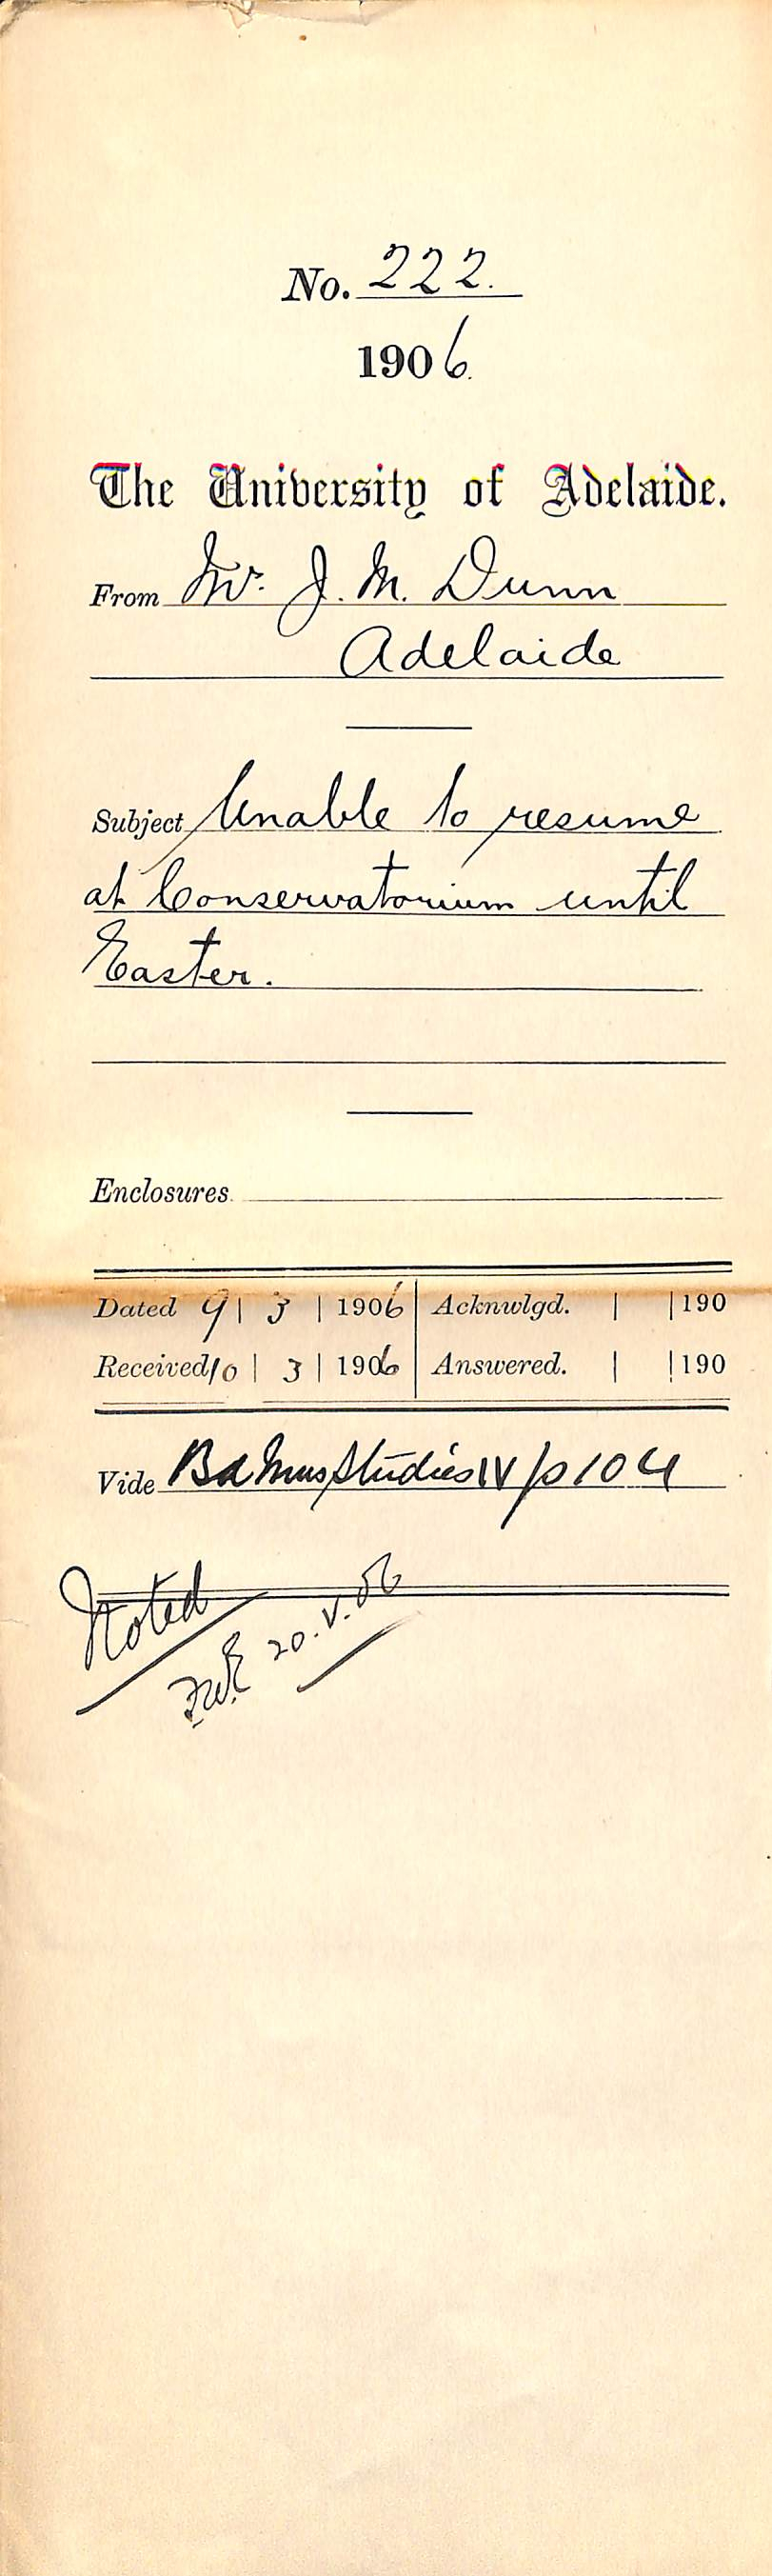 No. 222.
1906.
The University of Adelaide.
From Mr. J. M. Dunn
Adelaide
Subject Unable to resume
at Conservatorium until
Easter.
Enclosures
Dated 9 | 3 | 1906 Acknwlgd. | | 190
Received 10 | 3 | 1906 Answered. | | 190
Vide Bd Mus Studies IV p 104
Noted
20.V.06